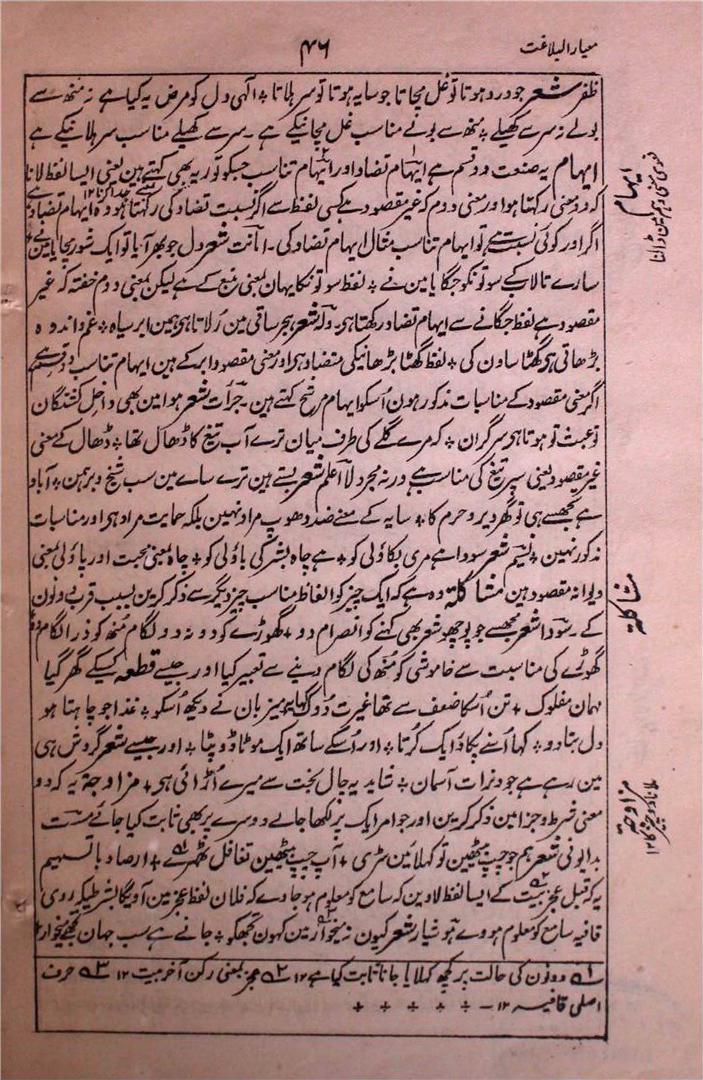 معیار البلاغت
۴۶
ظفر شعر جو درد ہوتا تو غل مچاتا جو سایہ ہوتا تو سر ہلاتا ٭ الٰہی دل کو مرض یہ کیا ہے نہ منھ سے
بولے نہ سر سے کھیلے ٭ منھ سے بولنے مناسب غل مچانیکے ہے ۔ سر سے کھیلے مناسب سر ہلانیکے ہے
ایہام یہ صنعت دو قسم ہے ایہام تضاد اور ایہام تناسب جسکو توریہ بھی کہتے ہین یعنی ایسا لفظ لانا
کہ دو معنی رکھتا ہو اور معنی دوم کہ غیر مقصود ہے کسی لفظ سے اگر نسبت تضاد کی رکھتا ہو وہ ایہام تضاد ہے
اگر اور کوئی نسبت ہے تو ایہام تناسب مثال ایہام تضاد کی ۔ امانت شعر دل جو بھر آیا تو ایک شور بچایا مین نے ٭
سارے تالاب کے سوتونکو جگایا مین نے ٭ لفظ سوتونکا یہان بمعنی منبع کے ہے لیکن بمعنی دوم خفتہ کہ غیر
مقصود ہے لفظ جگانے سے ایہام تضاد رکھتا ہی ۔ ولہ شعر ہجر ساقی مین رُلاتا ہی ہمین ابر سیاہ ٭ غم و اندوہ
بڑھاتی ہی گھٹا ساون کی ٭ لفظ گھٹا بڑھانیکی متضاد ہی اور معنی مقصود ابر کے ہین ایہام تناسب دو قسم ہے
اگر معنی مقصود کے مناسبات مذکور ہون اُسکو ایہام مرشح کہتے ہین ۔ جرأت شعر ہوا مین بھی داخل کشتگان
تو عبث تو ہوتا ہی سرگران ٭ کہ مرے گلے کی طرف میان ترے آب تیغ کا ڈھال تھا ٭ ڈھال کے معنی
غیر مقصود یعنی سپر تیغ کی مناسب ہے ورنہ مجرد لا اعلم شعر بستے ہین ترے سائے مین سب شیخ و برہمن ٭ آباد
ہے تجھسے ہی تو گھر دیر و حرم کا ٭ سایہ کے معنے ضد دھوپ مراد نہین بلکہ حمایت مراد ہی اور مناسبات
مذکور نہین ٭ نسیم شعر سودا ہے مری بکاؤلی کو ٭ ہے چاہ بشر کی باؤلی کو ٭ چاہ بمعنی محبت اور باؤلی بمعنی
دیوانہ مقصود ہین مشاکلتہ وہ ہے کہ ایک چیز کو الفاظ مناسب چیز دیگر سے ذکر کرین بسبب قرب دونون
کے ۔ سودا شعر مجھسے جو پوچھو شعر بھی کہنے کو انصرام دو ٭ گھوڑے کو دو نہ دو لگام منھ کو ذرا لگام دو
گھوڑے کی مناسبت سے خاموشی کو منھ کی لگام دینے سے تعبیر کیا اور جیسے قطعہ کسیکے گھر گیا
مہمان مفلوک ٭ تن اُسکا ضعف سے تھا غیرت دوک کہا یہ میزبان نے دیکھ اُسکو ٭ غذا جو چاہتا ہو
دل بتا دو ٭ کہا اُسنے پکاؤ ایک کُرتا ٭ اور اُسکے ساتھ ایک موٹا دوپٹا ٭ اور جیسے شعر گردش ہی
مین رہے ہے جو دنرات آسمان ٭ شاید یہ چال بخت سے میرے اُڑائی ہی ٭ مزاوجۃ یہ کہ دو
معنی شرط و جزا مین ذکر کرین اور جو امر ایک پر لکھا جائے دوسرے پر بھی ثابت کیا جائے مست
بدایونی شعر ہم جو چپ بیٹھین تو کہلائین سڑی ٭ آپ چپ بیٹھین تغافل ٹھہرے ٭ ارصاد یا تسہیم
یہ کہ قبل عجز بیت کے ایسا لفظ لاوین کہ سامع کو معلوم ہو جاوے کہ فلان لفظ عجز مین آویگا بشرطیکہ روی
قافیہ سامع کو معلوم ہووے ہوشیار شعر کیون نہ میخوار مین کہون تجھکو ٭ جانے ہے سب جہان تجھے میخوار ٭
؎۱ دونون کی حالت پر کچھ کہلایا جانا ثابت کیا ہے ۱۲ ؎۲ عجز بمعنی رکن آخر بیت ۱۲ ؎۳ حرف
اصلی قافیہ ۱۲ ۔ ٭ ٭ ٭ ٭ ٭
ایہام
مشاکلتہ
مزاوجتہ